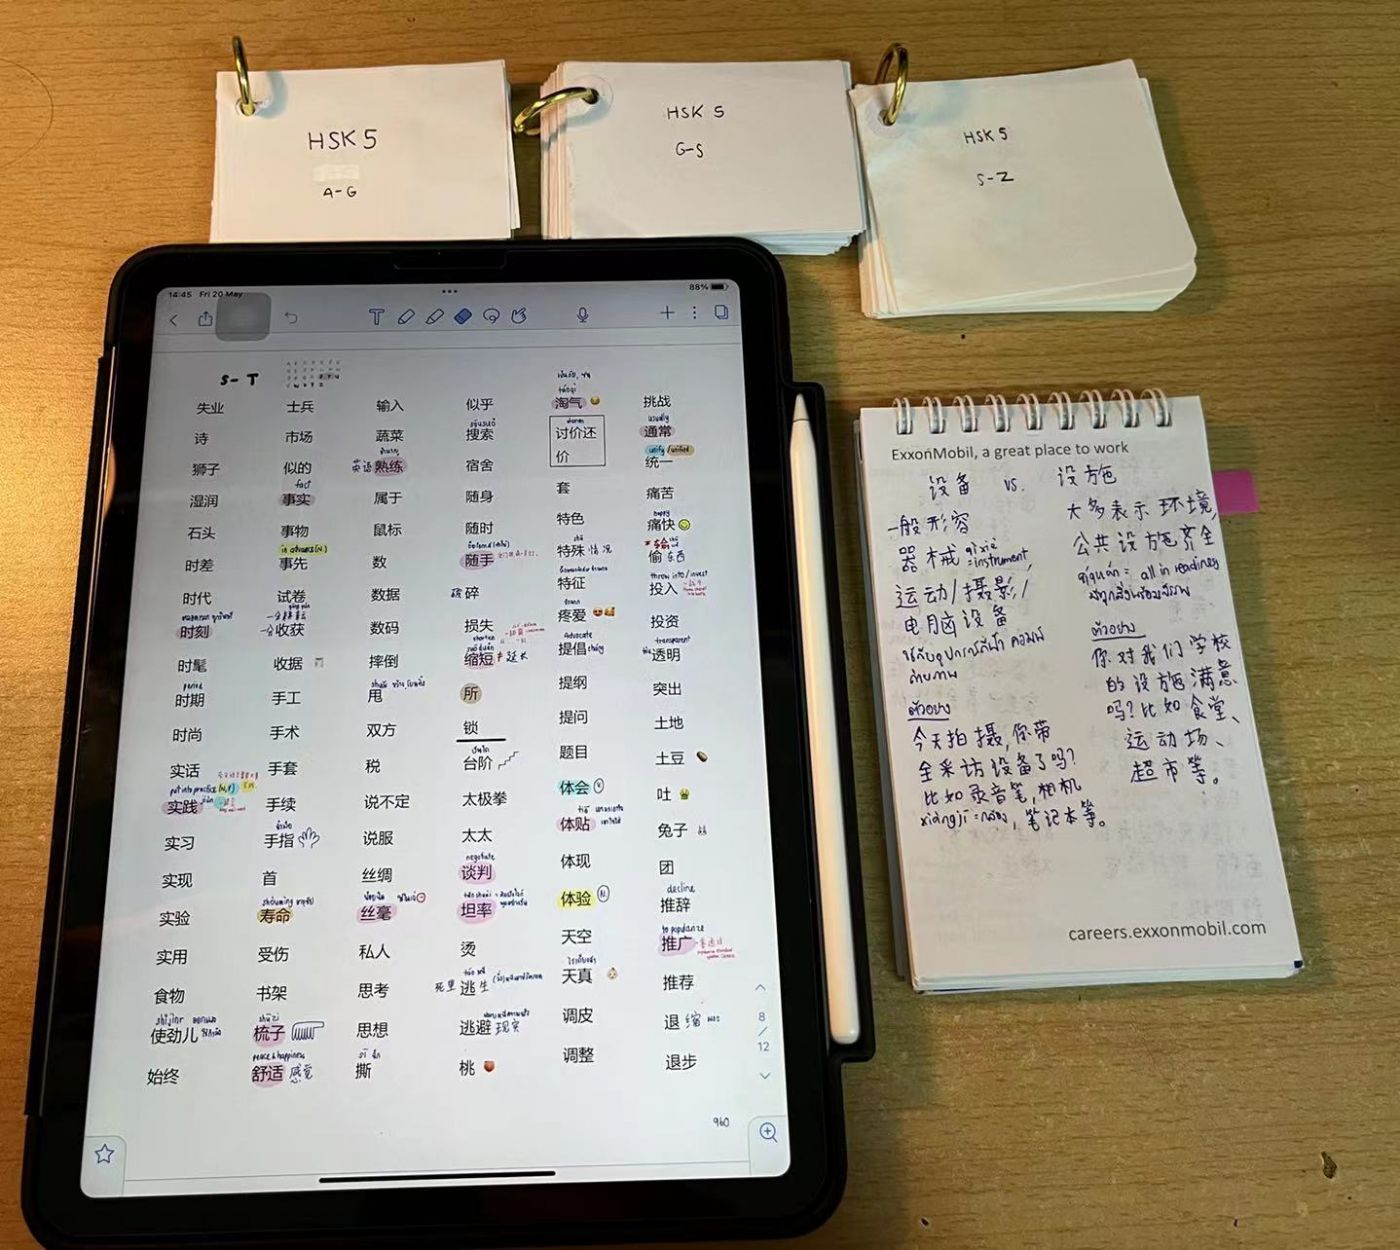 HSK 5
A-G
HSK 5
G-S
HSK 5
S-Z
14:45 Fri 20 May
88%
S-T
失业
诗
狮子
湿润
石头
时差
时代
时刻
时髦
period
时期
时尚
实话
put into practice
实践
实习
实现
实验
实用
食物
使劲儿
始终
士兵
市场
似的
fact
事实
事物
in advance
事先
试卷
收获
收据
手工
手术
手套
手续
手指
首
shòumìng
寿命
受伤
书架
shūzi
梳子
peace & happiness
舒适 感觉
输入
蔬菜
英语 熟练
属于
鼠标
数
数据
数码
摔倒
shuǎi
甩
双方
税
说不定
说服
丝绸
丝毫
私人
思考
思想
sī
撕
似乎
sōusuǒ
搜索
宿舍
随身
随时
随手
碎
损失
shorten
suōduǎn
缩短 延长
所
锁
台阶
太极拳
太太
negotiate
谈判
tǎnshuài
坦率
烫
死里逃生
逃避 现实
桃
táoqì
淘气
讨价还价
套
特色
特殊 情况
特征
疼爱
Advocate
提倡
提纲
提问
题目
体会
体贴
体现
体验
天空
天真
调皮
调整
挑战
usually
通常
unify/unified
统一
痛苦
happy
痛快
偷 东西
throw into/invest
投入
投资
transparent
透明
突出
土地
土豆
吐
兔子
团
decline
推辞
to popularize
推广
推荐
退 缩
退步
8
/
12
960
ExxonMobil, a great place to work
设备 vs. 设施
一般形容
器械 qìxiè =instrument,
运动/摄影/
电脑设备
ตัวอย่าง
今天拍摄,你带
全采访设备了吗?
比如录音笔,相机
xiàngjī=กล้อง, 笔记本等。
大多表示环境,
公共设施齐全
qíquán = all in readiness
ตัวอย่าง
你对我们学校
的设施满意
吗?比如食堂、
运动场、
超市等。
careers.exxonmobil.com